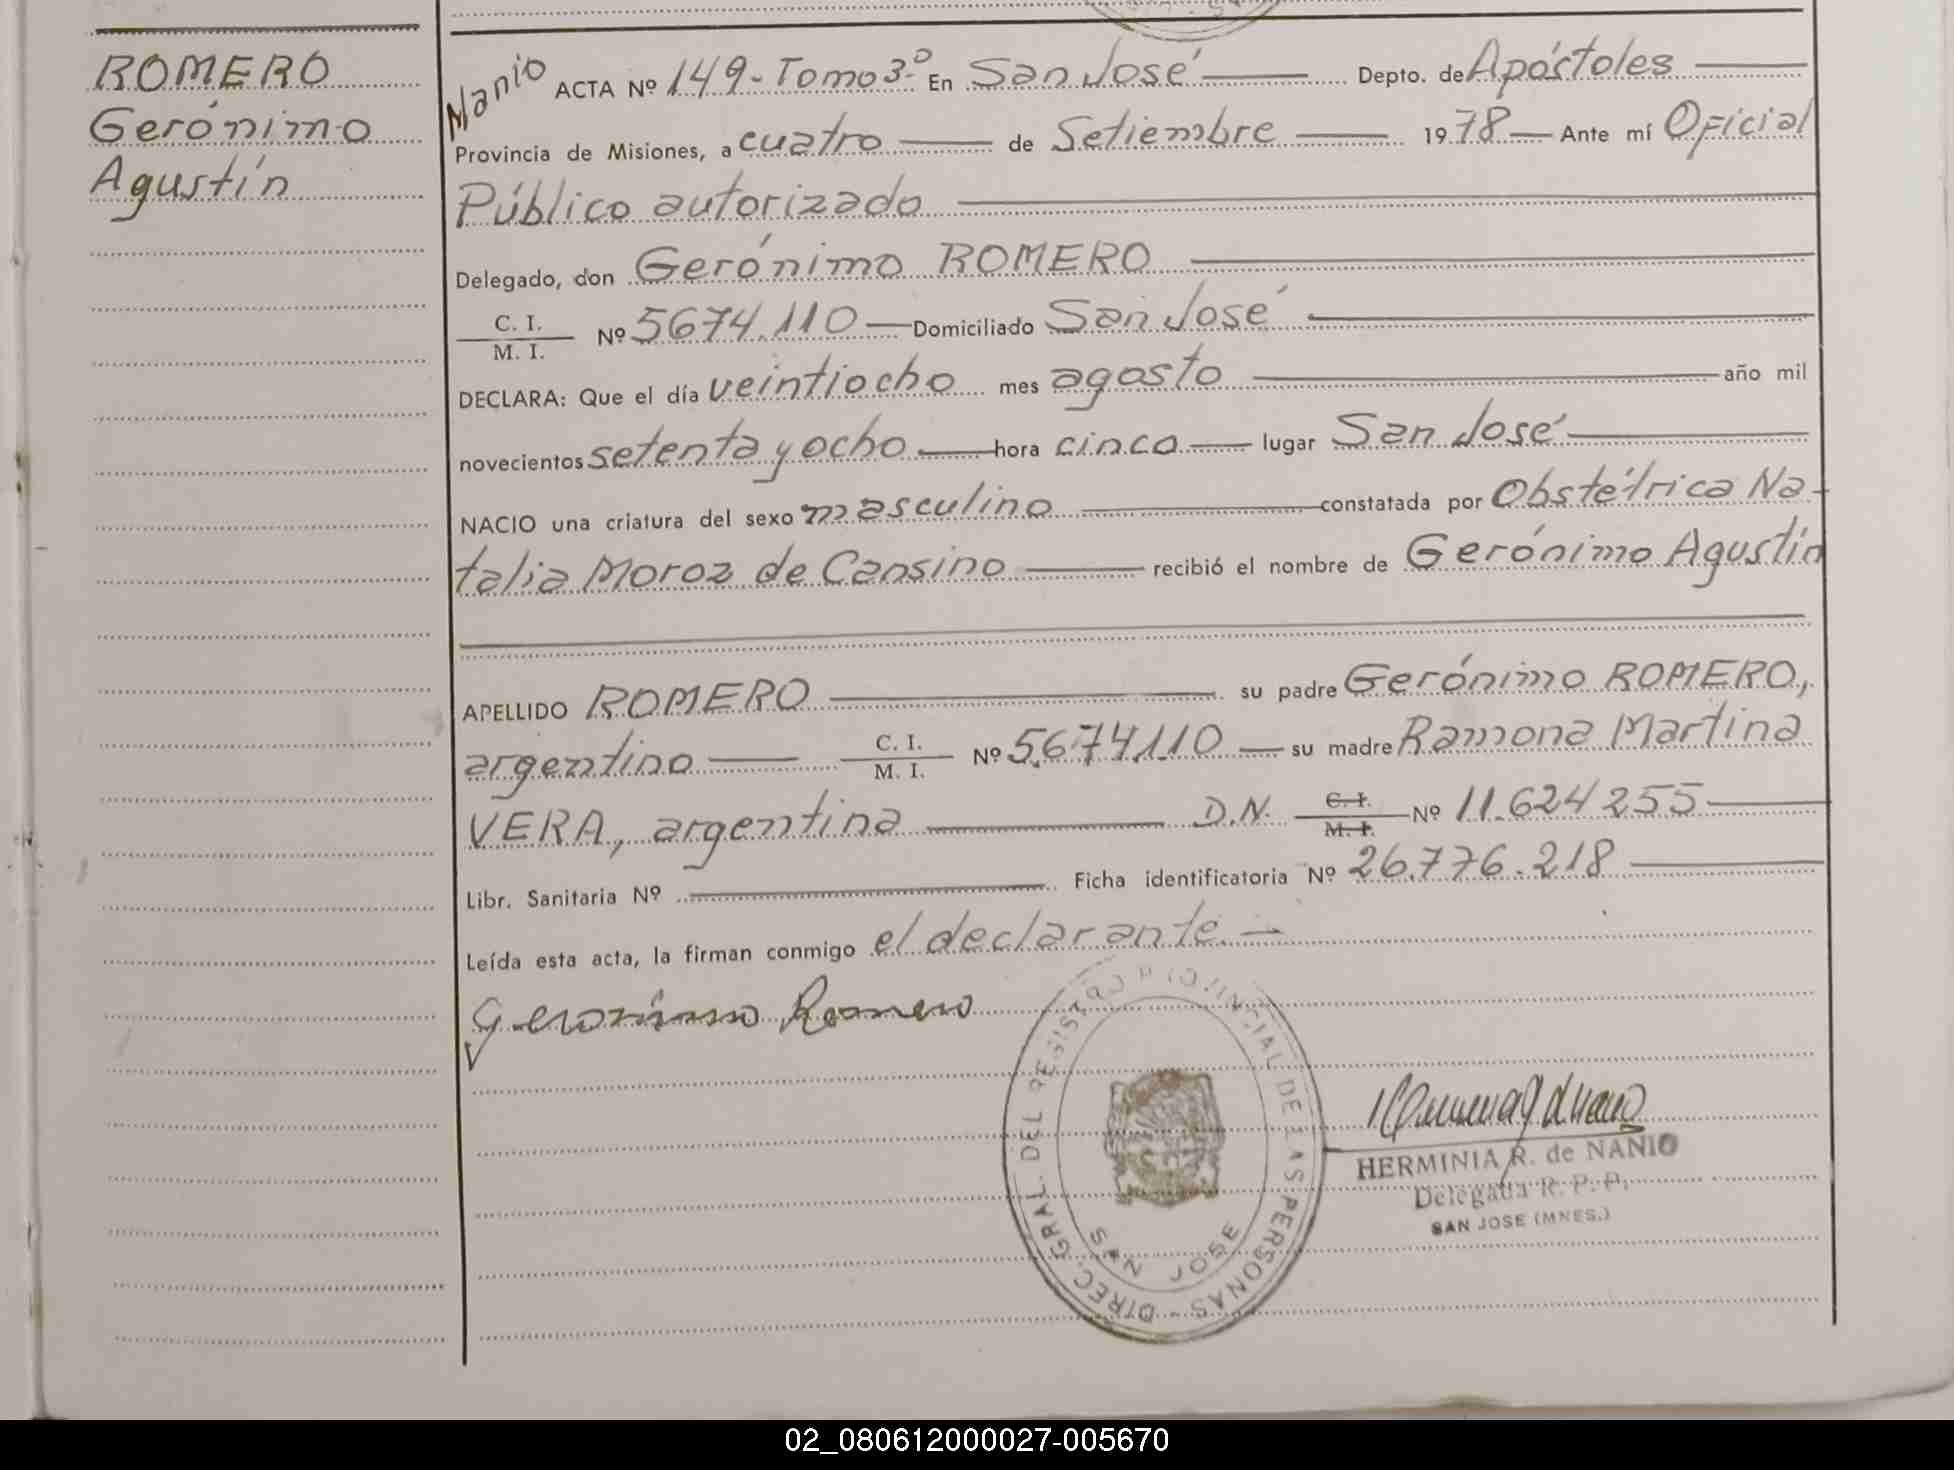 ROMERO
Gerónimo
Agustín
Nanio ACTA Nº 149-Tomo 3º En San José Depto. de Apóstoles
Provincia de Misiones, a cuatro de Setiembre 1978 Ante mí Oficial
Público autorizado
Delegado, don Gerónimo ROMERO
C. I. / M. I. Nº 5674.110 Domiciliado San José
DECLARA: Que el día veintiocho mes agosto año mil
novecientos setenta y ocho hora cinco lugar San José
NACIO una criatura del sexo masculino constatada por Obstétrica Na-
talia Moroz de Cansino recibió el nombre de Gerónimo Agustín
APELLIDO ROMERO su padre Gerónimo ROMERO,
argentino C. I. / M. I. Nº 5.674.110 su madre Ramona Martina
VERA, argentina D.N. C. I. / M. I. Nº 11.624255
Libr. Sanitaria Nº Ficha identificatoria Nº 26.776.218
Leída esta acta, la firman conmigo el declarante.
Gerónimo Romero
DIREC. GRAL. DEL REGISTRO PROVINCIAL DE LAS PERSONAS -
SAN JOSE
HERMINIA R. de NANIO
Delegada R. P. P.
SAN JOSE (MNES.)
02_080612000027-005670